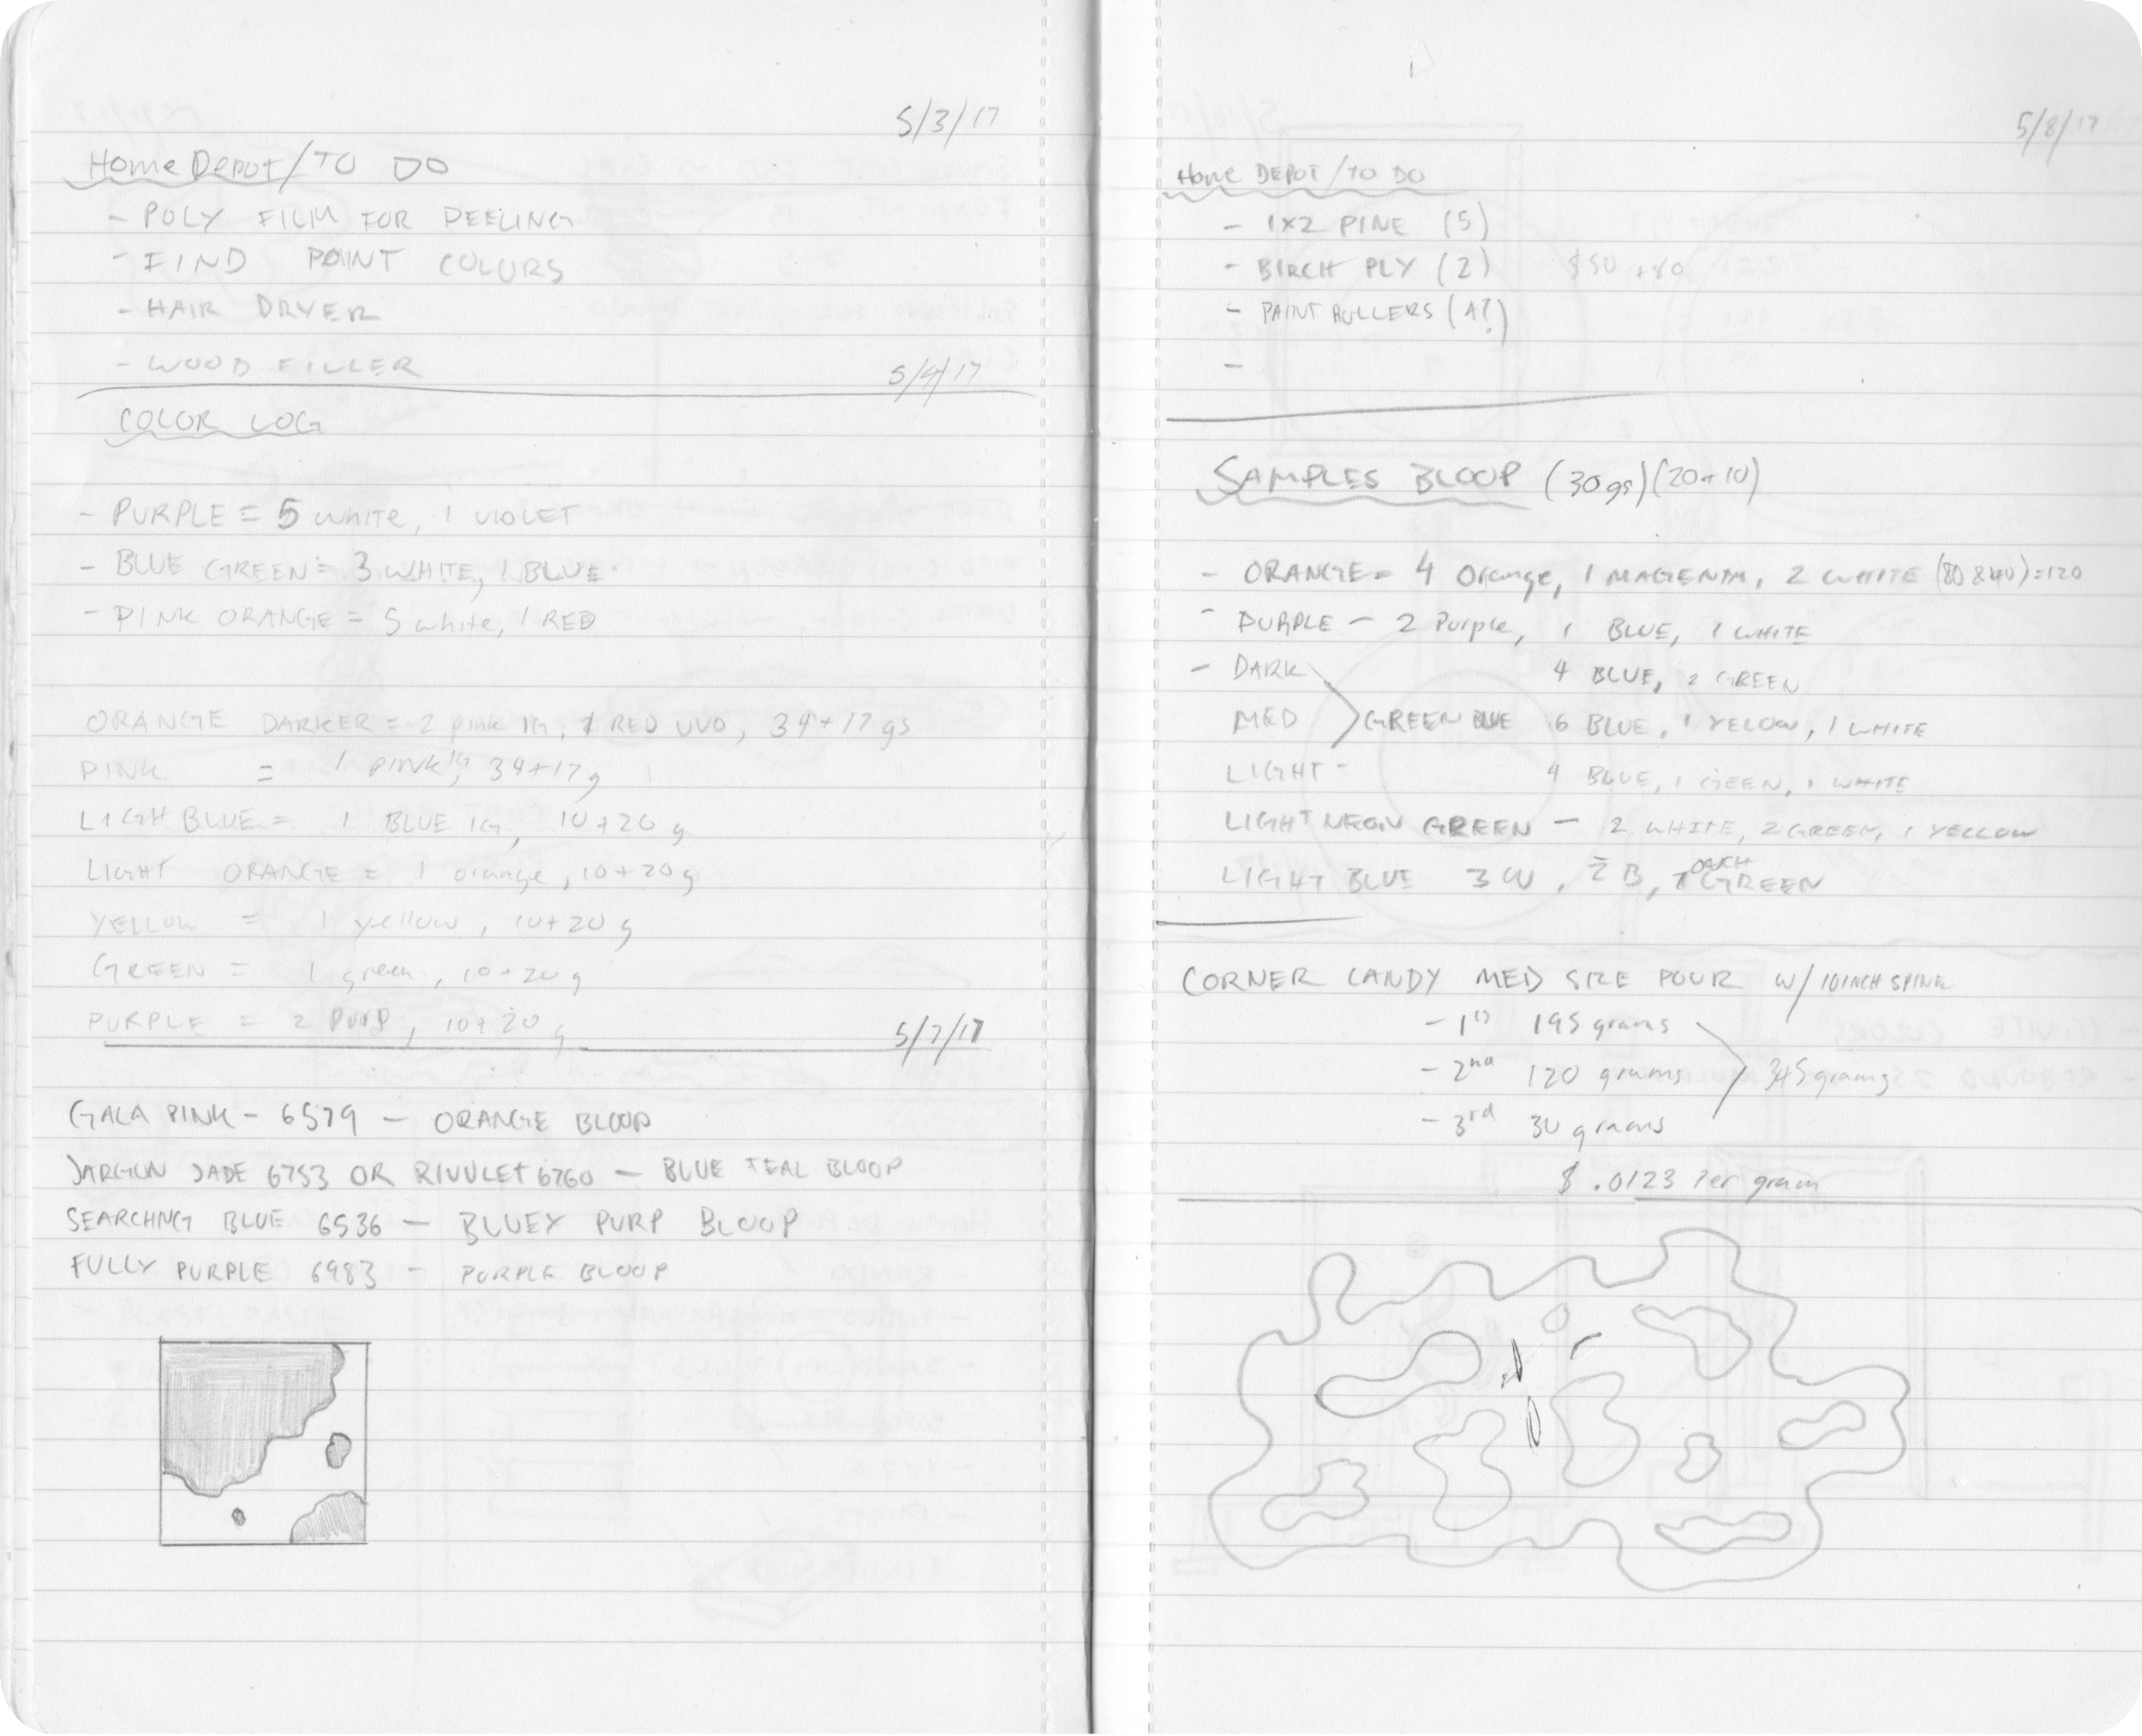 5/3/17
Home Depot/TO DO
- POLY FILM FOR PEELING
- FIND PAINT COLORS
- HAIR DRYER
- WOOD FILLER
5/4/17
COLOR LOG
- PURPLE = 5 white, 1 VIOLET
- BLUE GREEN = 3 WHITE, 1 BLUE
- PINK ORANGE = 5 white, 1 RED
ORANGE DARKER = 2 pink 1G, 1 RED UVO, 34+17 gs
PINK = 1 pink 1G, 34+17g
LIGH BLUE = 1 BLUE 1G, 10+20 g
LIGHT ORANGE = 1 orange, 10+20g
YELLOW = 1 yellow, 10+20 g
GREEN = 1 green, 10+20 g
PURPLE = 2 PURP, 10+20 g
5/7/17
GALA PINK - 6579 - ORANGE BLOOP
JARGON JADE 6753 OR RIVULET 6760 - BLUE TEAL BLOOP
SEARCHNG BLUE 6536 - BLUEY PURP BLOOP
FULLY PURPLE 6983 - PURPLE BLOOP
5/8/17
Home DEPOT/TO DO
- 1x2 PINE (5)
- BIRCH PLY (2) $50 +80
- PAINT ROLLERS (A?)
-
SAMPLES BLOOP (30gs)(20+10)
- ORANGE = 4 Orange, 1 MAGENTA, 2 WHITE (80 & 40)=120
- PURPLE - 2 Purple, 1 BLUE, 1 WHITE
- DARK 4 BLUE, 2 GREEN
MED GREEN BLUE 6 BLUE, 1 YELOW, 1 WHITE
LIGHT - 4 BLUE, 1 GEEN, 1 WHITE
LIGHT NEON GREEN - 2 WHITE, 2 GREEN, 1 YELLOW
LIGHT BLUE 3 W, 2 B, TOUCH GREEN
CORNER CANDY MED SIZE POUR W/ 10 INCH SPINE
- 1st 195 grams
- 2nd 120 grams 345 grams
- 3rd 30 grams
$ .0123 Per gram